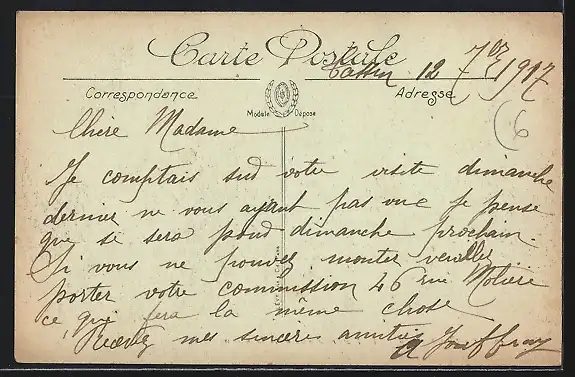 Carte Postale
12 7bre 1917
Correspondance
Adresse
Modèle Déposé
6
Chère Madame
Je comptais sud votre visite dimanche
dernier ne vous ayant pas vue je pense
que se sera poud dimanche prochain.
Si vous ne pouvez monter veuillez
porter votre commission 46 rue Molière
ce que fera la même chose
Recevez mes sincères amitiés